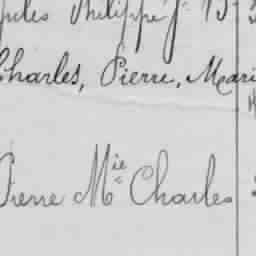 Philippe J. B.
Charles, Pierre, Mari
Pierre Mie Charles